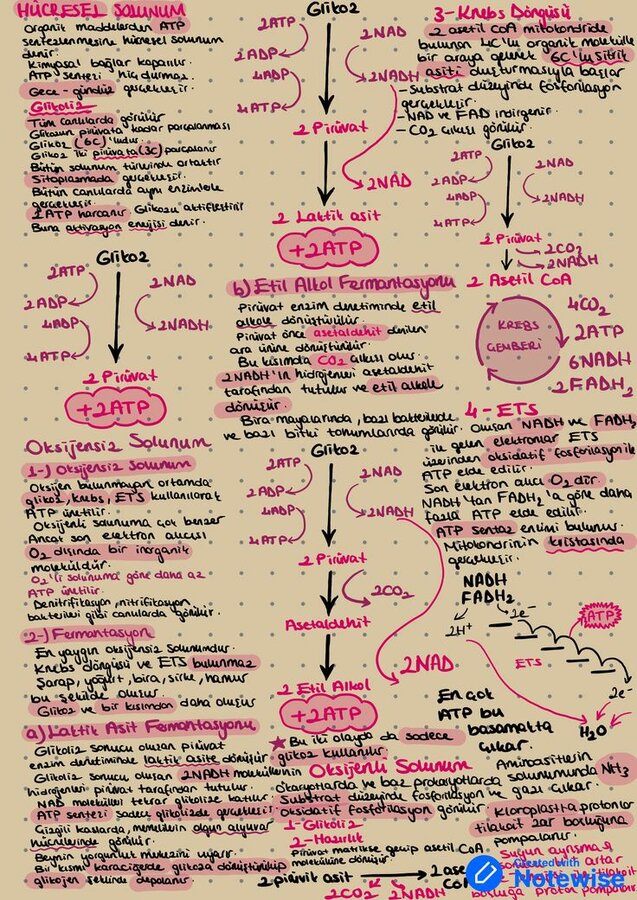 HÜCRESEL SOLUNUM
organik maddelerden ATP
sentezlenmesine hücresel solunum
denir.
Kimyasal bağlar koparılır.
ATP sentezi hiç durmaz.
Gece-gündüz gerçekleşir.
Glikoliz
Tüm canlılarda görülür
Glikozun pirüvata kadar parçalanması
Glikoz (6C)'ludur.
Glikoz iki pirüvata (3C) parçalanır
Bütün solunum türlerinde ortaktır
Sitoplazmada gerçekleşir.
Bütün canlılarda aynı enzimlerle
gerçekleşir.
2ATP harcanır Glikozu aktifleştirir
Buna aktivasyon enerjisi denir.
Glikoz
2ATP
2ADP
4ADP
4ATP
2NAD
2NADH
2 Pirüvat
+2ATP
Oksijensiz Solunum
1-) Oksijensiz Solunum
Oksijen bulunmayan ortamda
glikoz, krebs, ETS kullanılarak
ATP üretilir.
Oksijenli solunuma çok benzer
Ancak son elektron alıcısı
O2 dışında bir inorganik
moleküldür.
O2'li solunuma göre daha az
ATP üretilir.
Denitrifikasyon, nitrifikasyon
bakterileri gibi canlılarda görülür.
2-) Fermantasyon
En yaygın oksijensiz solunumdur.
Krebs döngüsü ve ETS bulunmaz
Şarap, yoğurt, bira, sirke, hamur
bu şekilde oluşur.
Glikoz ve bir kısımdan daha oluşur
a) Laktik Asit Fermantasyonu
Glikoliz sonucu oluşan pirüvat
enzim denetiminde laktik asite dönüşür
Glikoliz sonucu oluşan 2NADH molekülünün
hidrojenleri pirüvat tarafından tutulur.
NAD molekülleri tekrar glikolize katılır.
ATP sentezi sadece glikolizde gerçekleşir
Çizgili kaslarda, memelilerin olgun alyuvar
hücrelerinde görülür.
Beynin yorgunluk merkezini uyarır.
Bir kısmı karaciğerde glikoza dönüştürülüp
glikojen şeklinde depolanır.
Glikoz
2ATP
2ADP
4ADP
4ATP
2NAD
2NADH
2 Pirüvat
2NAD
2 Laktik asit
+2ATP
b) Etil Alkol Fermantasyonu
Pirüvat enzim denetiminde etil
alkole dönüştürülür.
Pirüvat önce asetaldehit denilen
ara ürüne dönüştürülür.
Bu kısımda CO2 çıkışı olur.
2NADH'ın hidrojenleri asetaldehit
tarafından tutulur ve etil alkole
dönüşür.
Bira mayalarında, bazı bakterilerde
ve bazı bitki tohumlarında görülür.
Glikoz
2ATP
2ADP
4ADP
4ATP
2NAD
2NADH
2 Pirüvat
2CO2
Asetaldehit
2NAD
2 Etil Alkol
+2ATP
Bu iki olayda da sadece
glikoz kullanılır.
Oksijenli Solunum
Ökaryotlarda ve bazı prokaryotlarda
Substrat düzeyinde fosforilasyon ve
Oksidatif fosforilasyon görülür.
1-Glikoliz
2-Hazırlık
Pirüvat matrikse geçip asetil CoA
molekülüne dönüşür.
2 pirüvik asit
2CO2
2NADH
3-Krebs Döngüsü
2 asetil CoA mitokondride
bulunan 4C'lu organik molekülle
bir araya gelerek 6C'lu sitrik
asiti oluşturmasıyla başlar
-Substrat düzeyinde fosforilasyon
gerçekleşir.
-NAD ve FAD indirgenir.
-CO2 çıkışı görülür.
Glikoz
2ATP
2ADP
4ADP
4ATP
2NAD
2NADH
2 Pirüvat
2CO2
2NADH
2 Asetil CoA
KREBS
ÇEMBERİ
4CO2
2ATP
6NADH
2FADH2
4-ETS
Oluşan NADH ve FADH2
ile gelen elektronlar ETS
üzerinden oksidatif fosforilasyon ile
ATP elde edilir.
Son elektron alıcı O2'dir.
NADH'tan FADH2'a göre daha
fazla ATP elde edilir.
ATP sentaz enzimi bulunur.
Mitokondrinin kristasında
gerçekleşir.
NADH
FADH2
2e-
2H+
ATP
ETS
2e-
H2O
En çok
ATP bu
basamakta
çıkar.
Aminoasitlerin
solunumunda NH3
gazı çıkar.
Kloroplastta protonlar
tilakoit zar boşluğuna
pompalanır.
Suyun ayrışması
Created with
Notewise